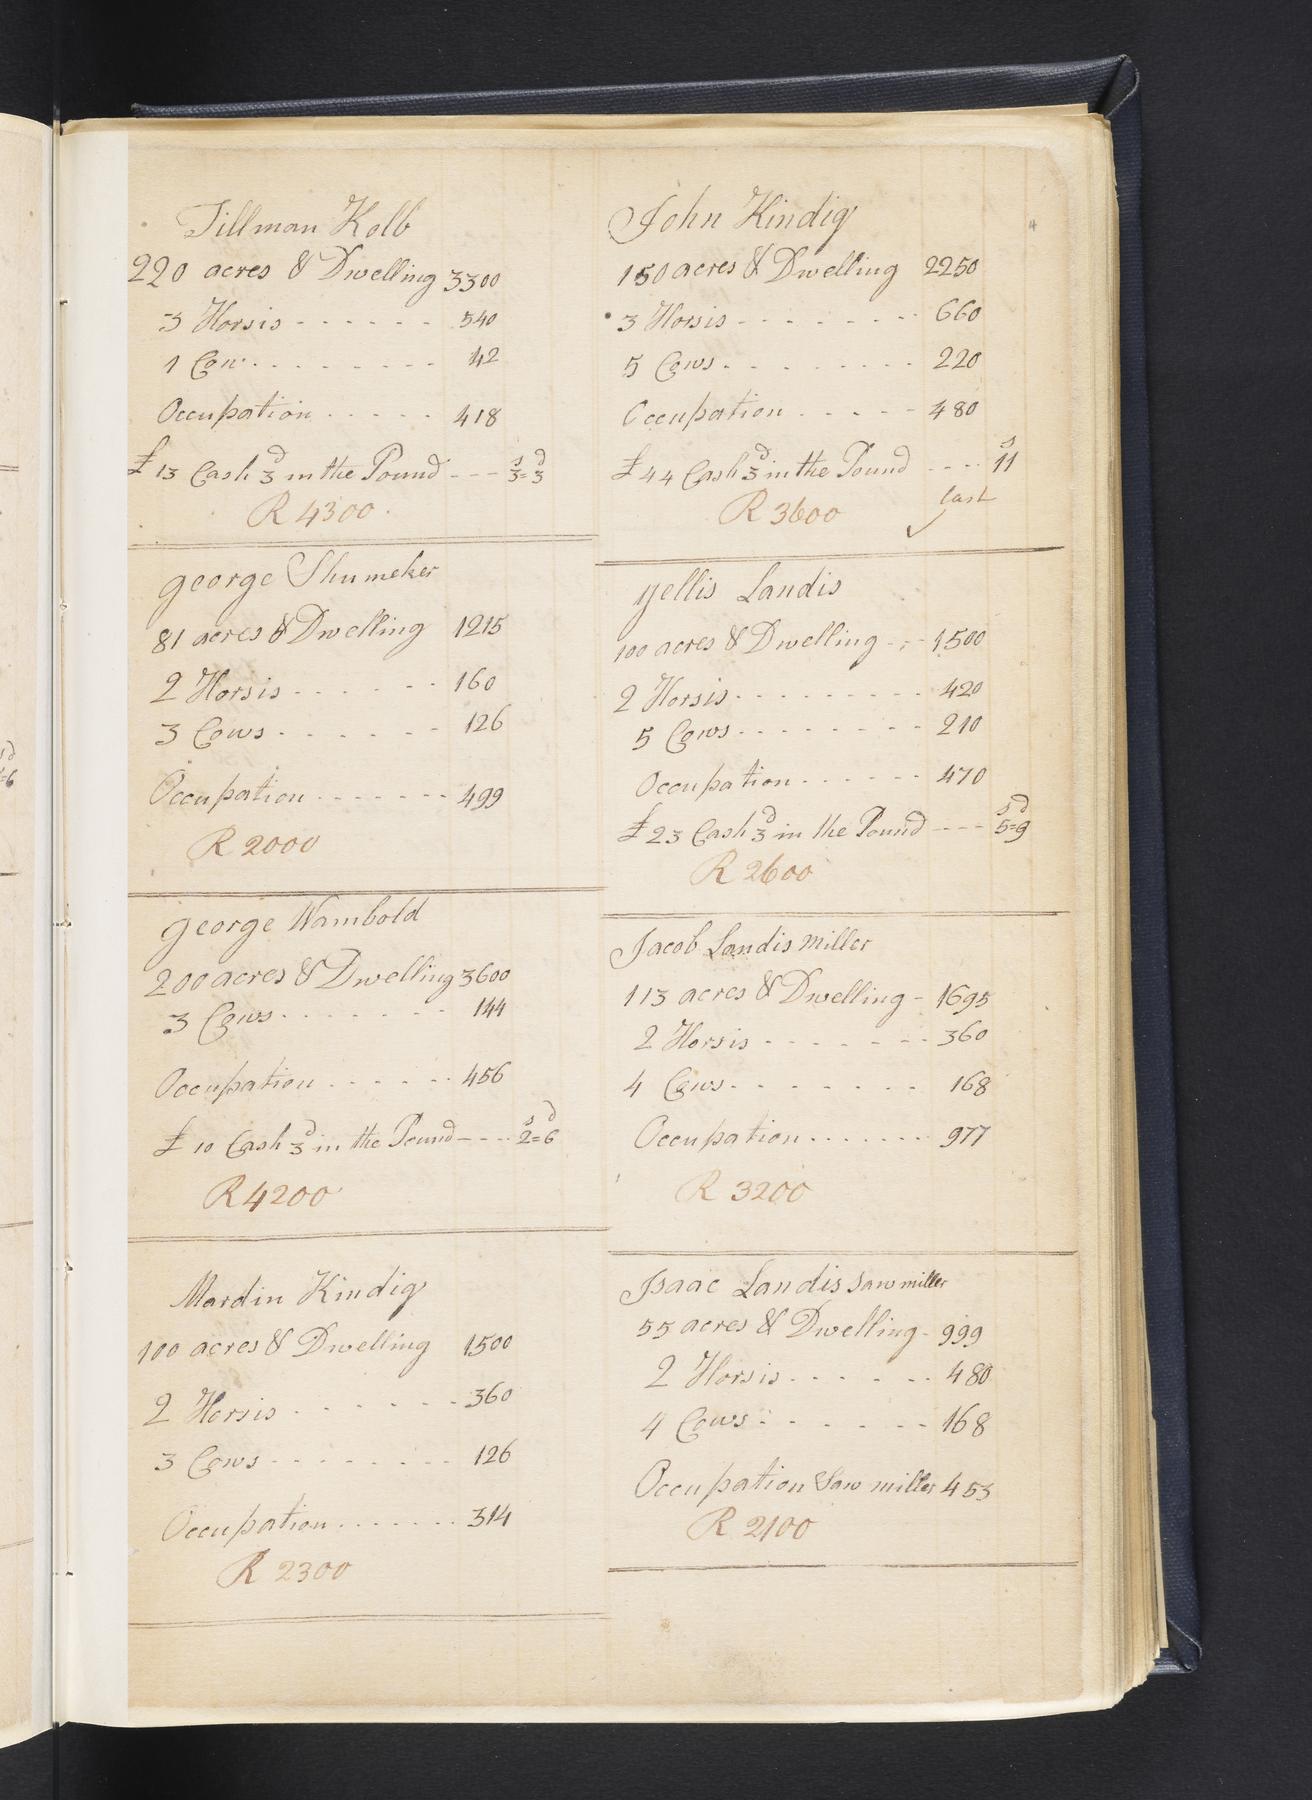 Tillman Kolb
220 acres & Dwelling 3300
3 Horsis - - - - - - 540
1 Cow - - - - - - - - 42
Occupation - - - - - 418
£ 13 Cash 3d in the Pound - - - s3=3d
R 4300
george Shumeker
81 acres & Dwelling 1215
2 Horsis - - - - - - 160
3 Cows - - - - - - - 126
Occupation - - - - - - - 499
R 2000
george Wambold
200 acres & Dwelling 3600
3 Cows - - - - - - - 144
Occupation - - - - - - 456
£ 10 Cash 3d in the Pound - - - s2=6d
R 4200
Mardin Kindig
100 acres & Dwelling 1500
2 Horsis - - - - - - - 360
3 Cows - - - - - - - - 126
Occupation - - - - - - - 314
R 2300
John Kindig
150 acres & Dwelling 2250
3 Horsis - - - - - - - - 660
5 Cows - - - - - - - - - 220
Occupation - - - - - 480
£ 44 Cash 3d in the Pound - - - - 11s
R 3600 last
yellis Landis
100 acres & Dwelling - - - 1500
2 Horsis - - - - - - - - - 420
5 Cows - - - - - - - - 210
Occupation - - - - - - 470
£ 23 Cash 3d in the Pound - - - - s5=9d
R 2600
Jacob Landis miller
113 acres & Dwelling - 1695
2 Horsis - - - - - - - 360
4 Cows - - - - - - - - 168
Occupation - - - - - - - 977
R 3200
Isaac Landis saw miller
55 acres & Dwelling - 999
2 Horsis - - - - - - 480
4 Cows - - - - - - - 168
Occupation Saw miller 453
R 2100